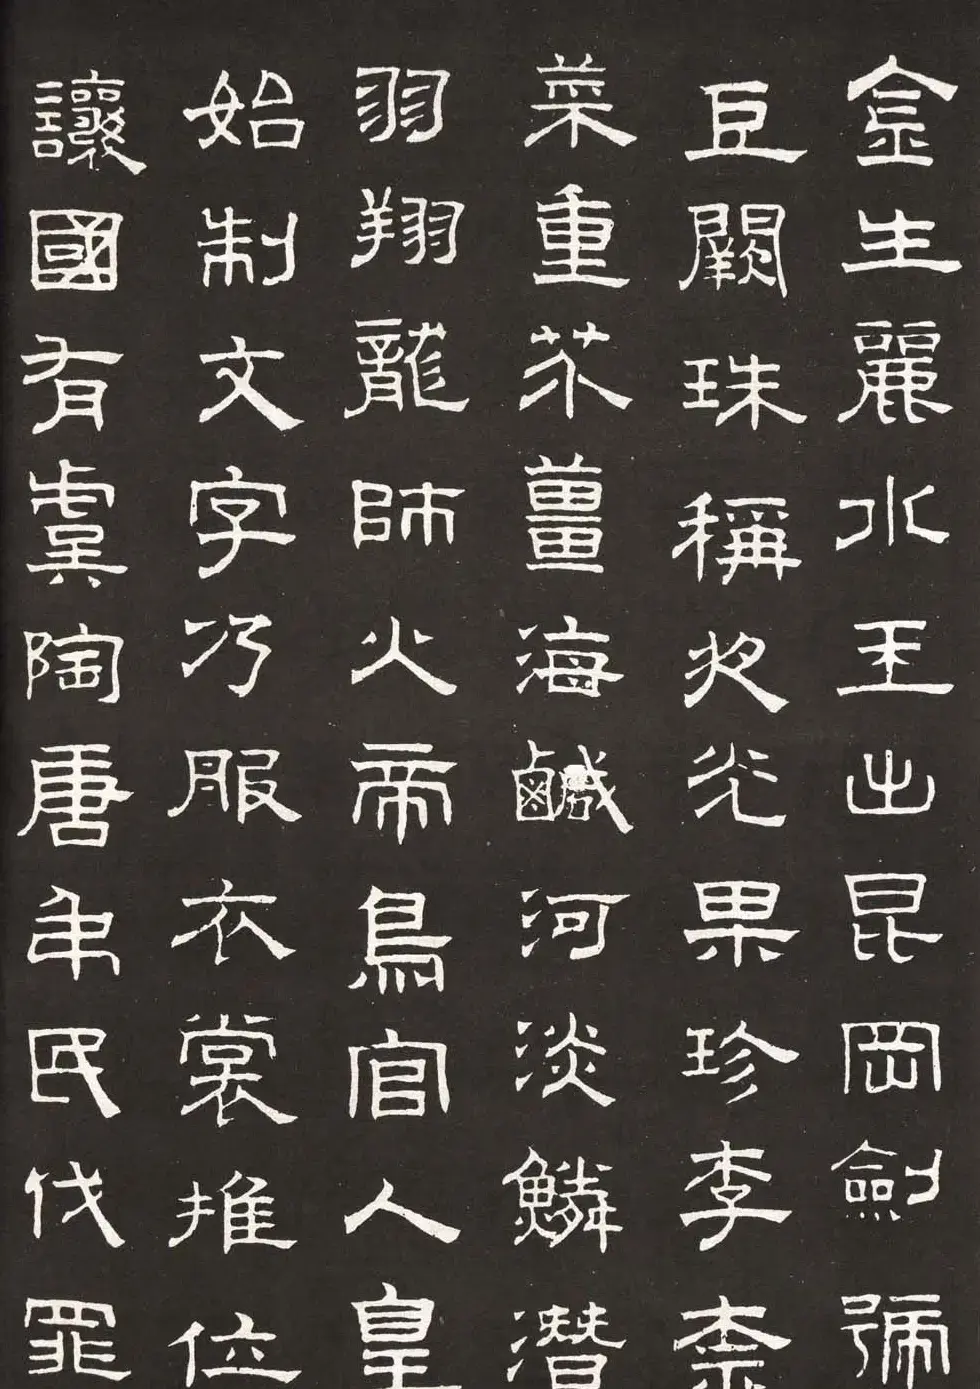 金生麗水玉出昆岡劍號
巨闕珠稱夜光果珍李柰
菜重芥薑海鹹河淡鱗潛
羽翔龍師火帝鳥官人皇
始制文字乃服衣裳推位
讓國有虞陶唐弔民伐罪